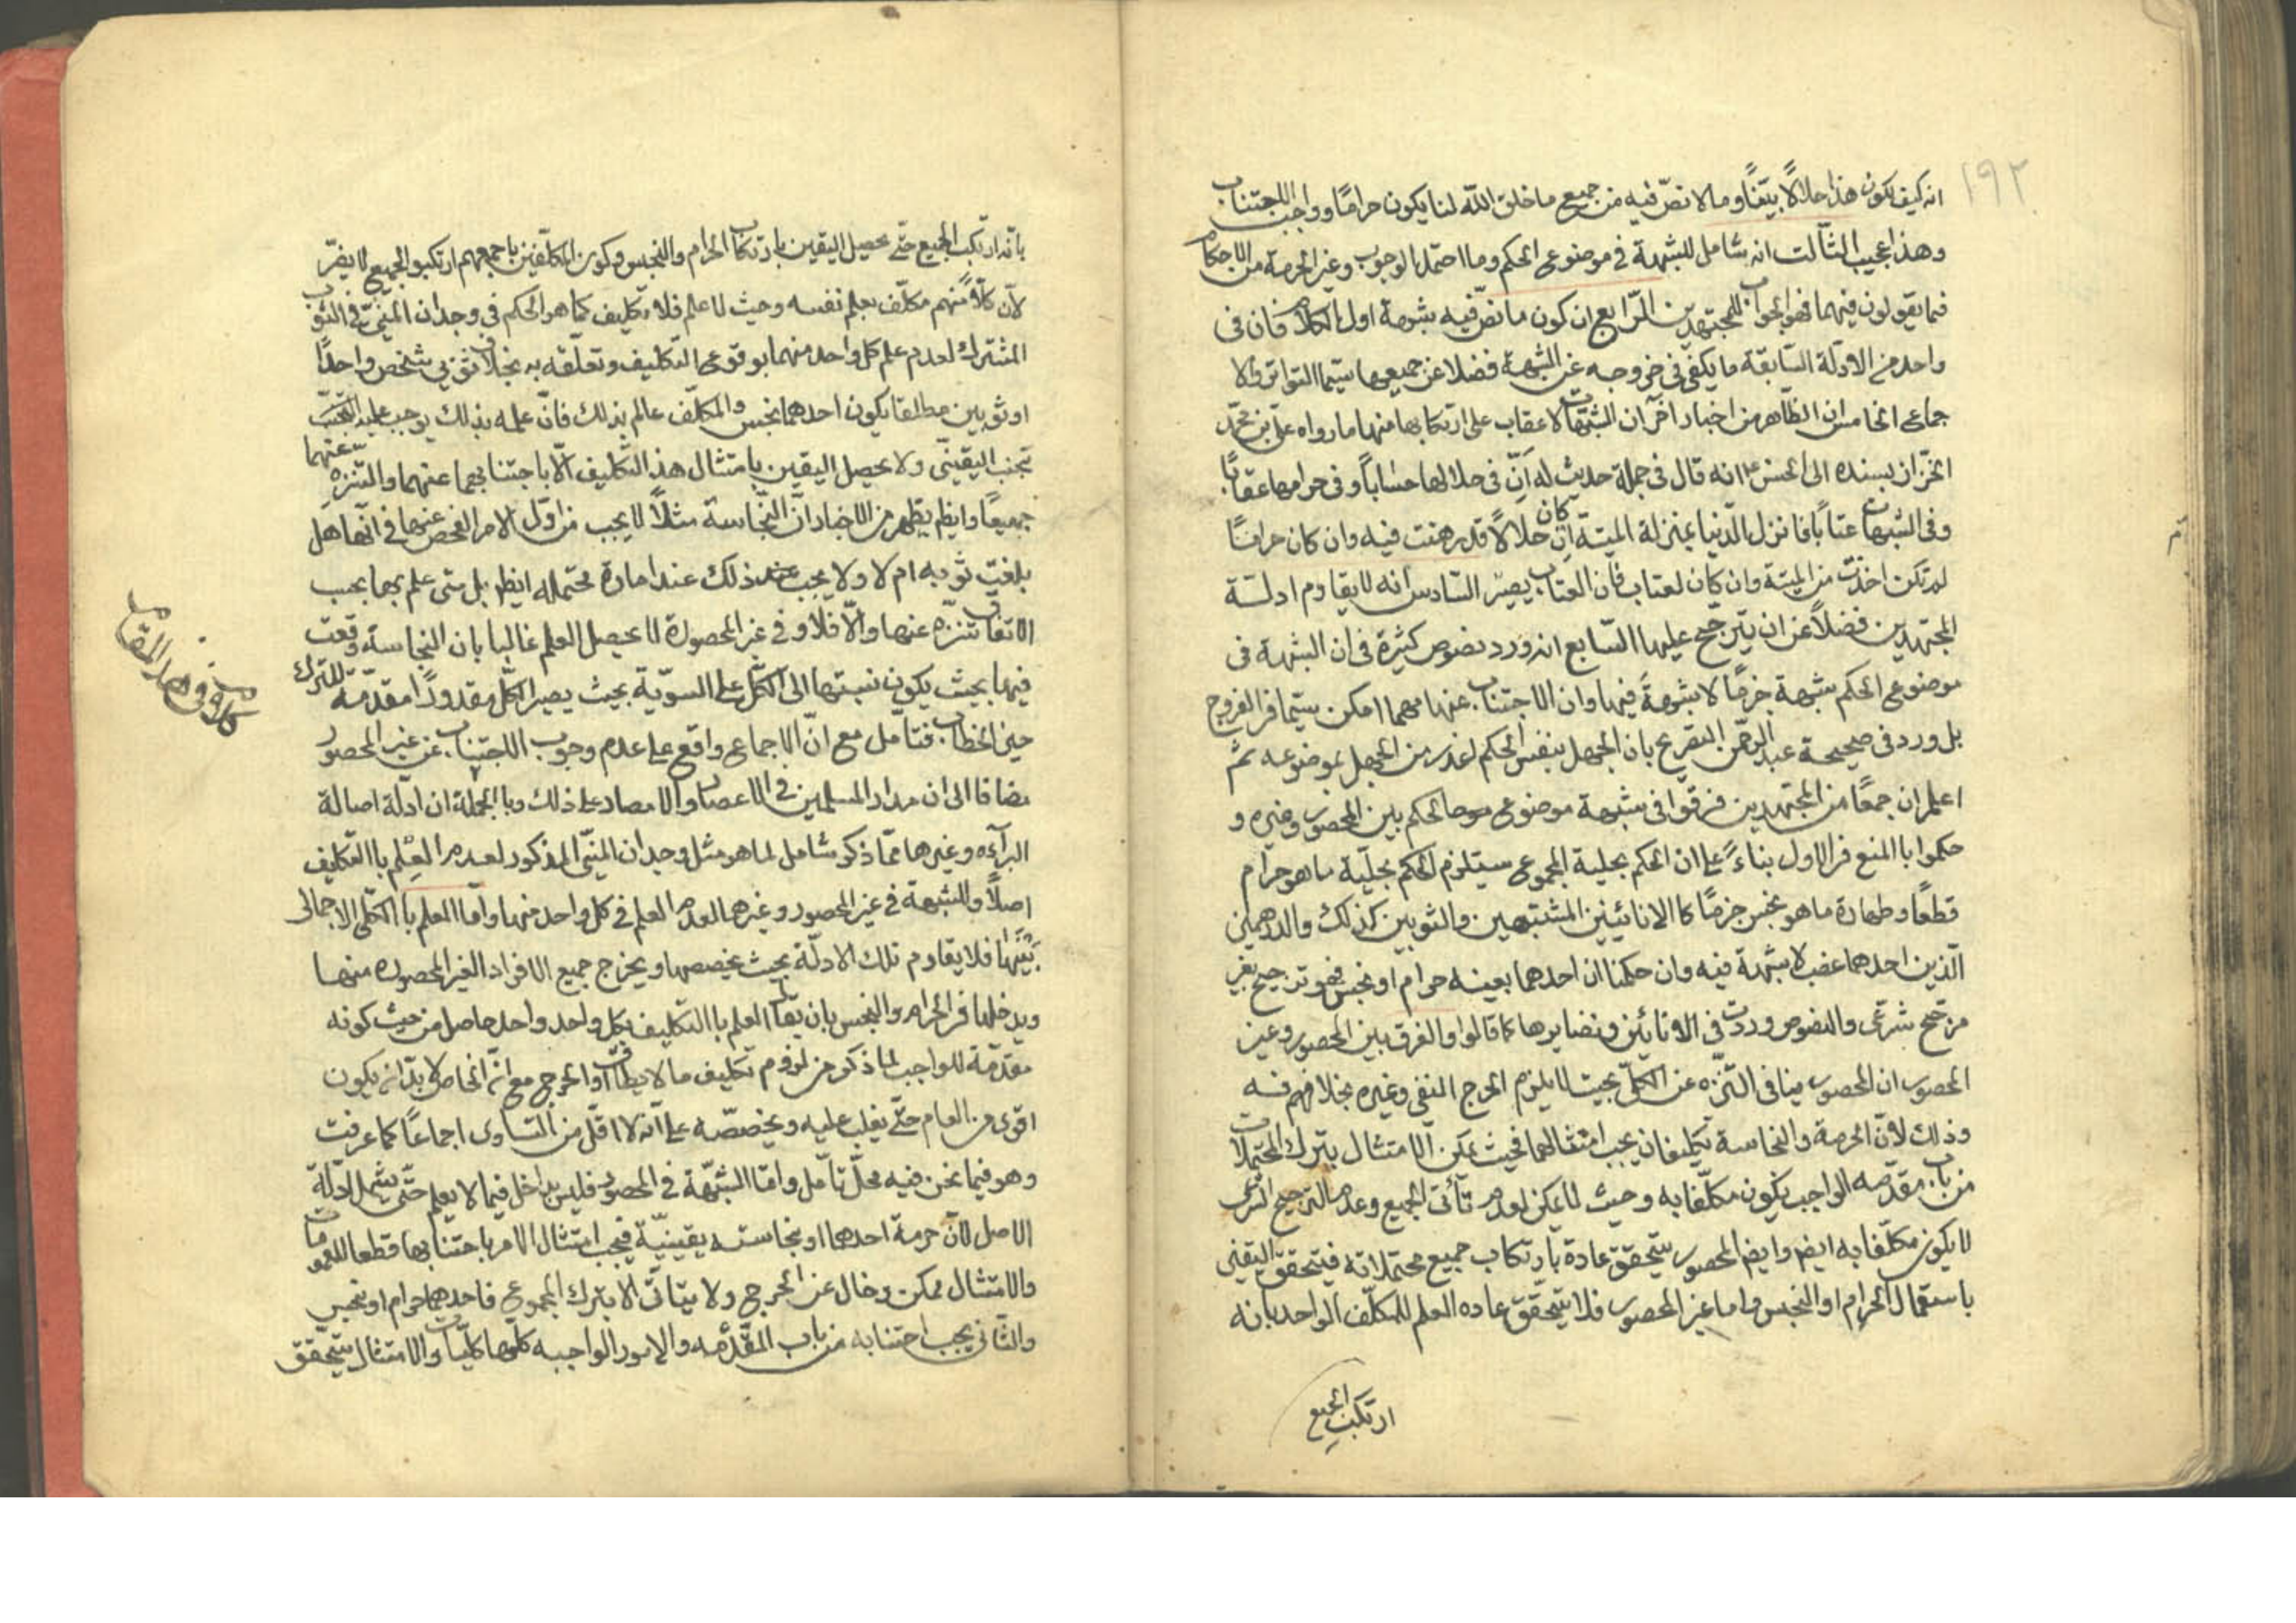 ١٩٢
انه كيف يكون هذا حلالاً بيّناً وما لا نصّ فيه من جميع ما خلق اللّه لنا يكون حرامًا وواجب الاجتناب
وهذا عجيب الثالث انه شامل للشبهة في موضوع الحكم وما احتمل الوجوب وغير الحرمة من الاحكام
فما يقولون فيهما فهو الجواب للمجتهدين الرّابع ان كون ما نصّ فيه شبهة اول الكلام فان في
واحد من الادلّة السّابقة ما يكفي في خروجه عن الشبهة فضلا عن جميعها سيّما التواتر والا
جماع الخامس ان الظاهر من اخبار اخر ان الشبهات لا عقاب على ارتكابها منها ما رواه علي بن محمّد
الخزّاز بسنده الى الحسن ع انه قال في جملة حديث له انّ في حلالها حساباً وفي حرامها عقابًا
وفي الشبهات عتاباً فانزل الدّنيا بمنزلة الميتة ان كان حلالاً قد زهدت فيه وان كان حرامًا
لم تكن اخذت من الميتة وان كان لعتاب فان العتاب يسير السّادس انه لا يقاوم ادلّة
المجتهدين فضلاً عن ان يترجّح عليها السّابع انه ورد نصوص كثيرة في ان الشبهة في
موضوع الحكم شبهة جزمًا لا شبهة فيها وان الاجتناب عنها مهما امكن سيّما في الفروج
بل ورد في صحيحة عبد الرحمن التصريح بان الجهل بنفس الحكم اعذر من الجهل بموضوعه ثم
اعلم ان جمعًا من المجتهدين فرقوا في شبهة موضوع الحكم بين المحصور وغيره و
حكموا با المنع في الاول بناءً على ان الحكم بحلية المجموع سيتلزم الحكم بحلّية ما هو حرام
قطعًا وطهارة ما هو نجس جزمًا كا الانائيين المشتبهين والثوبين كذلك والدرهمين
الّذين احدهما غصب لا شبهة فيه وان حكمنا ان احدهما بعينه حرام او نجس فهو ترجيح بغير
مرجّح شرعي والنصوص وردت في الانائين ونضايرها كما قالوا والفرق بين المحصور وغير
المحصور ان المحصور ينافي التنزّه عن الكلّ بحيث لا يلزم الحرج المنفي وغيره بخلافهم فيه
وذلك لانّ الحرمة والنجاسة تكليفان يجب امتثالهما فحيث يمكن الامتثال بترك المحتملات
من باب مقدّمه الواجب يكون مكلّفا به وحيث لا يمكن لعدم تأتى الجميع وعدم الترجيح الشرعي
لا يكون مكلّفا به ايضم وايضم المحصور يتحقق عادة بارتكاب جميع محتملاته فيتحقق اليقين
باستعمال الحرام او النجس واما غير المحصور فلا يتحقق عاده العلم للمكلّف الواحد بانه
ارتكب الجميع
بانّه ارتكب الجميع حتّى يحصل اليقين بارتكاب الحرام والنجس وكون المكلّفين باجمعهم ارتكبو الجميع لا يضرّ
لانّ كلّا منهم مكلّف بعلم نفسه وحيث لا علم فلا تكليف كما هو الحكم في وجدان المنيّ في الثوب
المشترك لعدم علم كل واحد منهما بوقوع التكليف وتعلّقه به بخلاف ثوبي شخص واحدًا
او ثوبين مطلقا يكون احدهما نجس والمكلّف عالم بذلك فانّ علمه بذلك يوجب عليه التجنّب عنهما
تجنب اليقيني ولا يحصل اليقين بامتثال هذا التكليف الّا باجتنابهما عنهما والتنزه
جميعًا وايظم يظهر من الاخبار انّ النّجاسة مثلاً لا يجب من اوّل الامر الفحص عنها في انّها هل
بلغت ثوبه ام لا ولا يجب عند ذلك عند امارة محتمله ايظم بل متى علم بها يجب
الاتفاق تنزه عنها والّا فلا وفي غير المحصورة لا يحصل العلم غالبا بان النجاسة وقعت
فيها بحيث يكون نسبتها الى الكلّ على السويّة بحيث يصير الكلّ مقدورًا مقدّمة للترك
حين الخطاب فتأمّل مع انّ الاجماع واقع على عدم وجوب الاجتناب عن غير المحصور
مضافا الى ان مدار المسلمين في الاعصار والامصار على ذلك وبا الجملة ان ادلّة اصالة
البرآءه وغيرها ممّا ذكر شامل لما هو مثل وجدان المنيّ المذكور لعدم العلم با التكليف
اصلاً وللشبهة في غير المحصور وغيرها لعدم العلم في كل واحد منها وامّا العلم با الكلّي الاجمالي
بينها فلا يقاوم تلك الادلّة بحيث يخصصها ويخرج جميع الافراد الغير المحصوره منها
ويدخلها في الحرام والنجس بان يقال العلم با التكليف بكل واحد واحد حاصل من حيث كونه
مقدّمة للواجب لما ذكر من لزوم تكليف ما لا يطاق او الحرج مع انّ الخاص لا بدّ ان يكون
اقوى من العام حتّى يغلب عليه ويخصّصه على انه لا اقلّ من التساوى اجماعًا كما عرفت
وهو فيما نحن فيه محلّ تأمل وامّا الشبهة في المحصور فليس بداخل فيما لا يعلم حتّى يشمل ادلّة
الاصل لانّ حرمة احدها او نجاسته يقينيّة فيجب امتثال الامر باجتنابها قطعا للعمومات
والامتثال ممكن وخال عن الحرج ولا يتأتّى الا بترك المجموع فاحدهما حرام او نجس
والثاني يجب اجتنابه من باب المقدّمه والامور الواجبه كلّها كليات والامتثال يتحقق